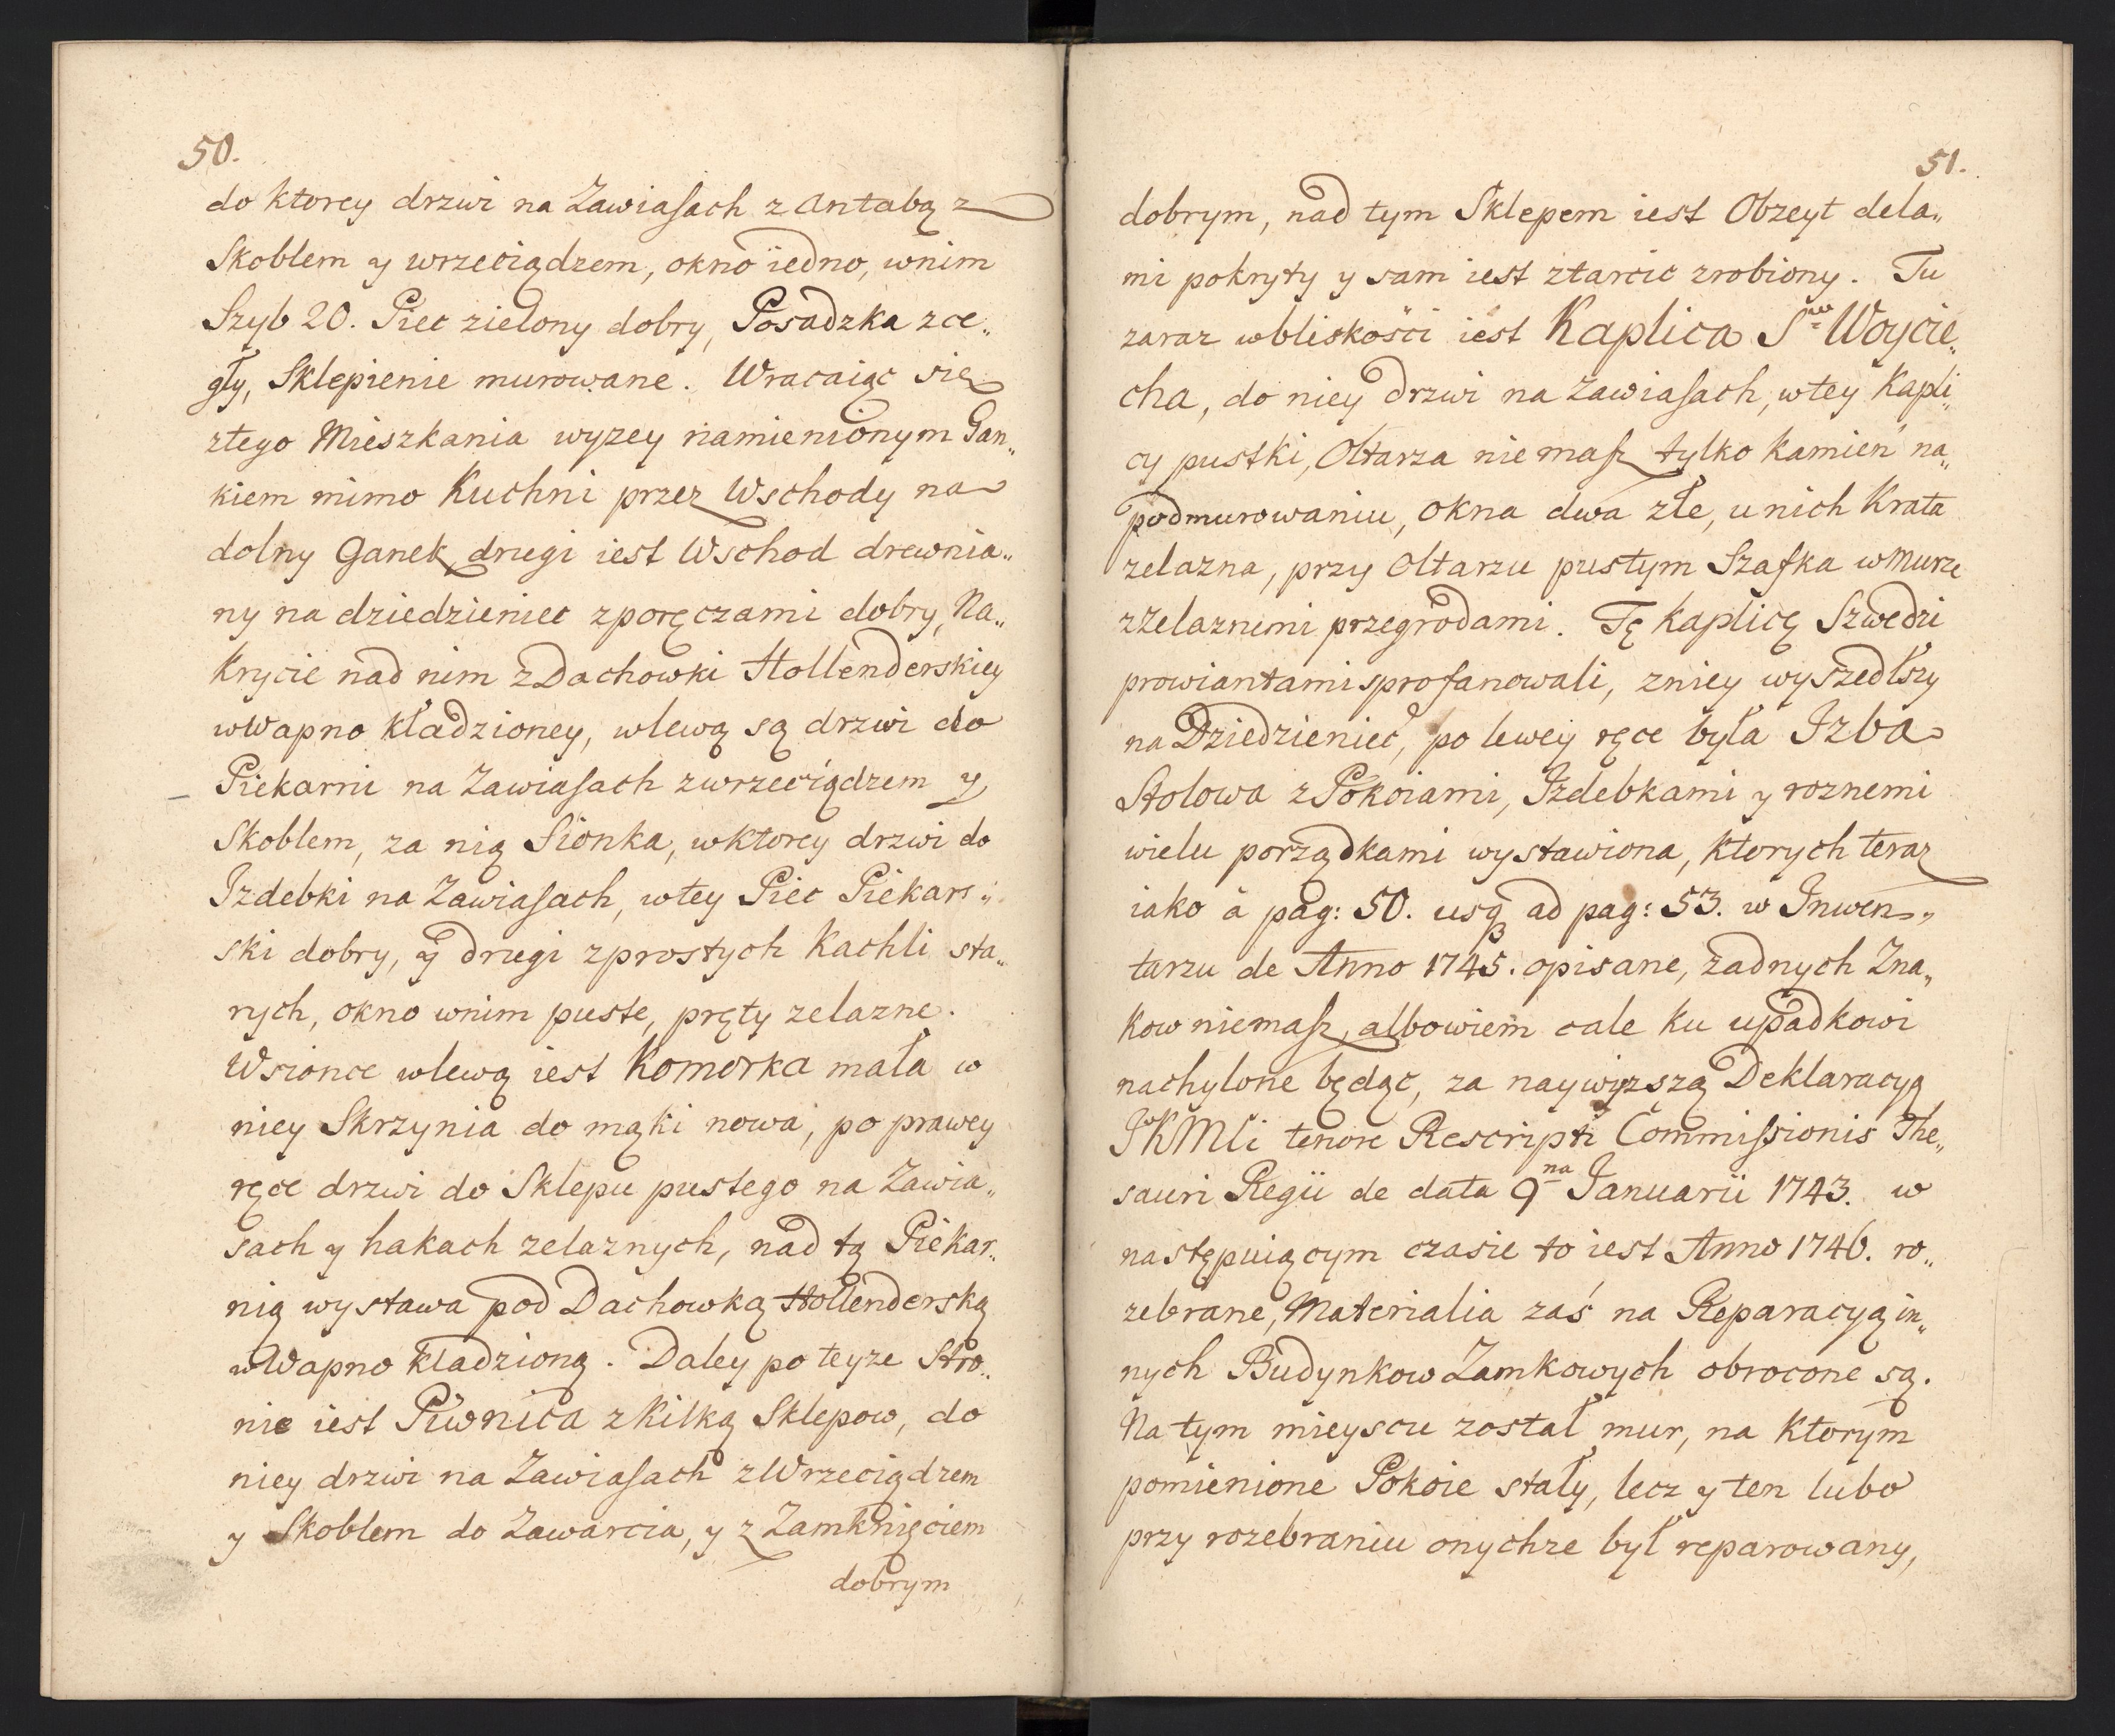 50.
do ktorey drzwi na Zawiasach z Antabą z
Skoblem y wrzeciądzem, okno iedno, wnim
Szyb 20. Piec zielony dobry, Posadzka zce„
gły, Sklepienie murowane. Wracaiąc się
ztego Mieszkania wyzey namienionym Gan„
kiem mimo Kuchni przez Wschody na
dolny Ganek, drugi iest Wschod drewnia„
ny na dziedzieniec zporęczami dobry, Na„
krycie nad nim z Dachowki Hollenderskiey
wWapno kładzioney, wlewą są drzwi do
Piekarni na Zawiasach zwrzeciądzem y
Skoblem, za nią Sionka, wktorey drzwi do
Izdebki na Zawiasach, wtey Piec Piekar„
ski dobry, y drugi zprostych Kachli sta„
rych, okno wnim puste, pręty zelazne.
Wsionce wlewą iest Komorka mała w
niey Skrzynia do mąki nowa, po prawey
ręce drzwi do Sklepu pustego na Zawia„
sach y hakach zelaznych, nad tą Piekar„
nią wystawa pod Dachowką Hollenderską
wWapno kładzioną. Daley po teyze Stro„
nie iest Piwnica zkilką Sklepow, do
niey drzwi na Zawiasach zWrzeciądzem
y Skoblem do Zawarcia, y z Zamknięciem
dobrym
51.
dobrym, nad tym Sklepem iest Obzeyt dela„
mi pokryty y sam iest ztarcic zrobiony. Tu
zaraz wbliskości iest Kaplica Sgo Woycie„
cha, do niey drzwi na Zawiasach, wtey Kapli„
cy pustki, Ołtarza niemasz tylko Kamień na„
podmurowaniu, okna dwa złe, unich Krata
zelazna, przy Ołtarzu pustym Szafka wMurze
zZelaznemi przegrodami. Tę Kaplicę Szwedzi
prowiantami sprofanowali, zniey wyszedłszy
na Dziedzieniec, po lewey ręce była Izba
Stolowa z Pokoiami, Izdebkami y roznemi
wielu porządkami wystawiona, ktorych teraz
iako à pag: 50. usq ad pag: 53. w Inwen„
tarzu de Anno 1745. opisane, zadnych Zna„
kow niemasz, albowiem cale ku upadkowi
nachylone będąc, za naywyzszą Deklaracyą
JKMCi tenore Rescripti Commissionis The„
sauri Regii de data 9na Januarii 1743. w
następuiącym czasie to iest Anno 1746. ro„
zebrane, Materialia zaś na Reparacyą in„
nych Budynkow Zamkowych obrocone są.
Na tym mieyscu został mur, na ktorym
pomienione Pokoie stały, lecz y ten lubo
przy rozebraniu onychze był reparowany,